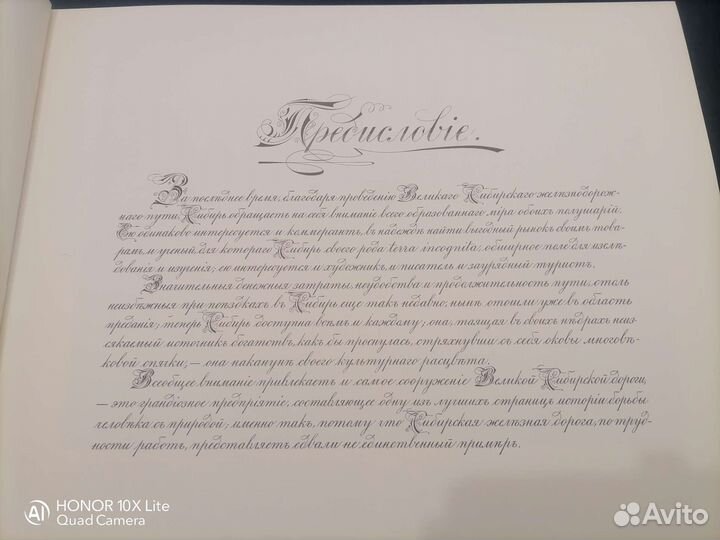 Предисловіе.
За послѣднее время, благодаря проведенію Великаго Сибирскаго желѣзнодорож-
наго пути, Сибирь обращаетъ на себя вниманіе всего образованнаго міра обоихъ полушарій.
Ею одинаково интересуется и коммерсантъ, въ надеждѣ найти выгодный рынокъ своимъ това-
рамъ, и ученый, для котораго Сибирь своего рода terra incognita, обширное поле для изслѣ-
дованія и изученія; ею интересуется и художникъ, и писатель и заурядный туристъ.
Значительныя денежныя затраты, неудобства и продолжительность пути, столь
неизбѣжныя при поѣздкахъ въ Сибирь еще такъ недавно, нынѣ отошли уже въ область
преданія; теперь Сибирь доступна всѣмъ и каждому; она, таящая въ своихъ нѣдрахъ неиз-
сякаемый источникъ богатствъ, какъ бы проснулась, стряхнувши съ себя оковы многовѣ-
ковой спячки, — она наканунѣ своего культурнаго расцвѣта.
Всеобщее вниманіе привлекаетъ и самое сооруженіе Великой Сибирской дороги,
— это грандіозное предпріятіе, составляющее одну изъ лучшихъ страницъ исторіи борьбы
человѣка съ природой; именно такъ, потому что Сибирская желѣзная дорога, по труд-
ности работъ, представляетъ едвали не единственный примѣръ.
HONOR 10X Lite
Quad Camera
Avito